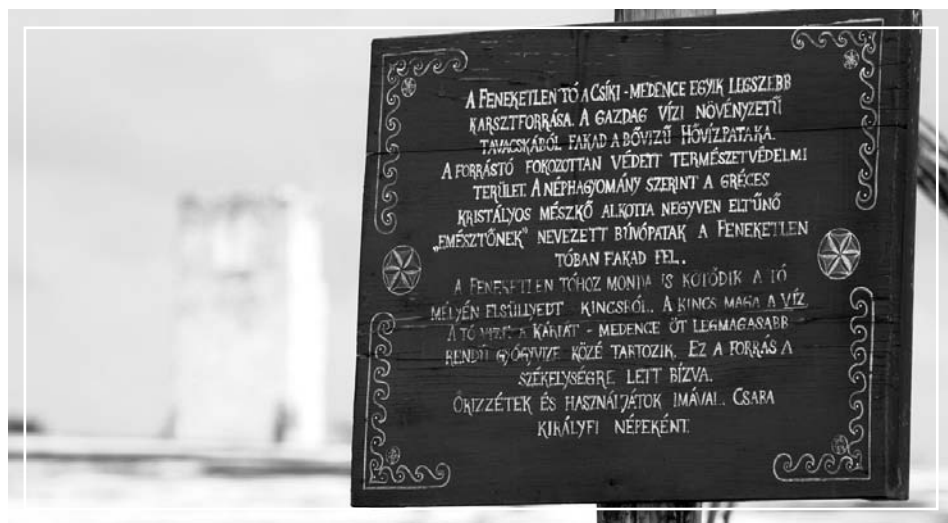 A FENEKETLEN TÓ A CSÍKI - MEDENCE EGYIK LEGSZEBB
KARSZTFORRÁSA. A GAZDAG VÍZI NÖVÉNYZETŰ
TAVACSKÁBÓL FAKAD A BŐVIZŰ HŐVÍZPATAKA.
A FORRÁSTÓ FOKOZOTTAN VÉDETT TERMÉSZETVÉDELMI
TERÜLET. A NÉPHAGYOMÁNY SZERINT A GRÉCES
KRISTÁLYOS MÉSZKŐ ALKOTTA NEGYVEN ELTŰNŐ
„EMÉSZTŐNEK” NEVEZETT BÚVÓPATAK A FENEKETLEN
TÓBAN FAKAD FEL.
A FENEKETLEN TÓHOZ MONDA IS KÖTŐDIK A TÓ
MÉLYÉN ELSÜLLYEDT KINCSRŐL. A KINCS MAGA A VÍZ
A TÓ VIZE A KÁRPÁT - MEDENCE ÖT LEGMAGASABB
RENDŰ GYÓGYVIZE KÖZÉ TARTOZIK. EZ A FORRÁS A
SZÉKELYSÉGRE LETT BÍZVA.
ŐRIZZÉTEK ÉS HASZNÁLJÁTOK IMÁVAL. CSABA
KIRÁLYFI NÉPEKÉNT.